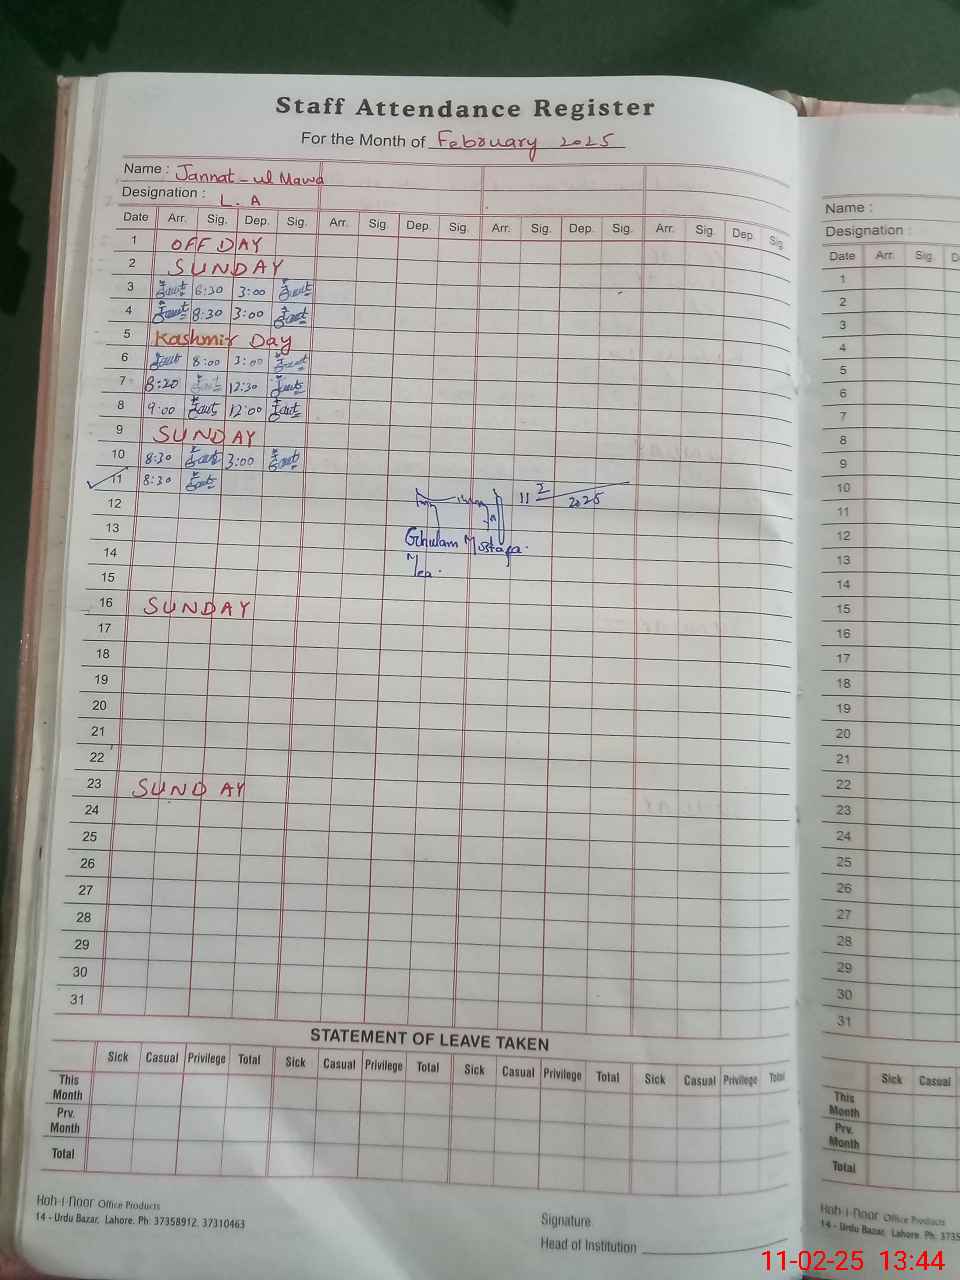 Staff Attendance Register
For the Month of February 2025
Name : Jannat-ul Mawa
Designation : L. A
Date Arr. Sig. Dep. Sig. Arr. Sig. Dep. Sig. Arr. Sig. Dep. Sig. Arr. Sig. Dep. Sig.
1 OFF DAY
2 SUNDAY
3 8:30 3:00
4 8:30 3:00
5 Kashmir Day
6 8:00 3:00
7 8:20 12:30
8 9:00 12:00
9 SUNDAY
10 8:30 3:00
11 8:30
11 2 2025
12
13
Ghulam Mustafa.
Mea.
14
15
16 SUNDAY
17
18
19
20
21
22
23 SUNDAY
24
25
26
27
28
29
30
31
STATEMENT OF LEAVE TAKEN
Sick Casual Privilege Total Sick Casual Privilege Total Sick Casual Privilege Total Sick Casual Privilege Total
This Month
Prv. Month
Total
Koh-i-Noor Office Products
14 - Urdu Bazar, Lahore. Ph: 37358912, 37310463
Signature
Head of Institution
Name :
Designation :
Date Arr. Sig. D
1
2
3
4
5
6
7
8
9
10
11
12
13
14
15
16
17
18
19
20
21
22
23
24
25
26
27
28
29
30
31
Sick Casual
This Month
Prv. Month
Total
Koh-i-Noor Office Products
14 - Urdu Bazar, Lahore. Ph: 3735
11-02-25 13:44